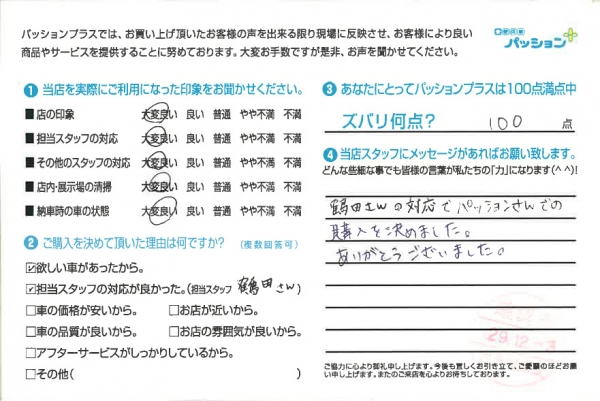 パッションプラスでは、お買い上げ頂いたお客様の声を出来る限り現場に反映させ、お客様により良い
商品やサービスを提供することに努めております。大変お手数ですが是非、お声を聞かせてください。
パッション
1 当店を実際にご利用になった印象をお聞かせください。
■店の印象 大変良い 良い 普通 やや不満 不満
■担当スタッフの対応 大変良い 良い 普通 やや不満 不満
■その他のスタッフの対応 大変良い 良い 普通 やや不満 不満
■店内・展示場の清掃 大変良い 良い 普通 やや不満 不満
■納車時の車の状態 大変良い 良い 普通 やや不満 不満
2 ご購入を決めて頂いた理由は何ですか? (複数回答可)
☑欲しい車があったから。
☑担当スタッフの対応が良かった。(担当スタッフ 鶴田さん)
□車の価格が安いから。 □お店が近いから。
□車の品質が良いから。 □お店の雰囲気が良いから。
□アフターサービスがしっかりしているから。
□その他( )
3 あなたにとってパッションプラスは100点満点中
ズバリ何点? 100 点
4 当店スタッフにメッセージがあればお願い致します。
どんな些細な事でも皆様の言葉が私たちの「力」になります(^^)!
鶴田さんの対応でパッションさんでの
購入を決めました。
ありがとうございました。
29.12.-3
ご協力に心より御礼申し上げます。今後も宜しくお引き立て、ご愛顧のほどお願
い申し上げます。またのご来店を心よりお待ちしております。